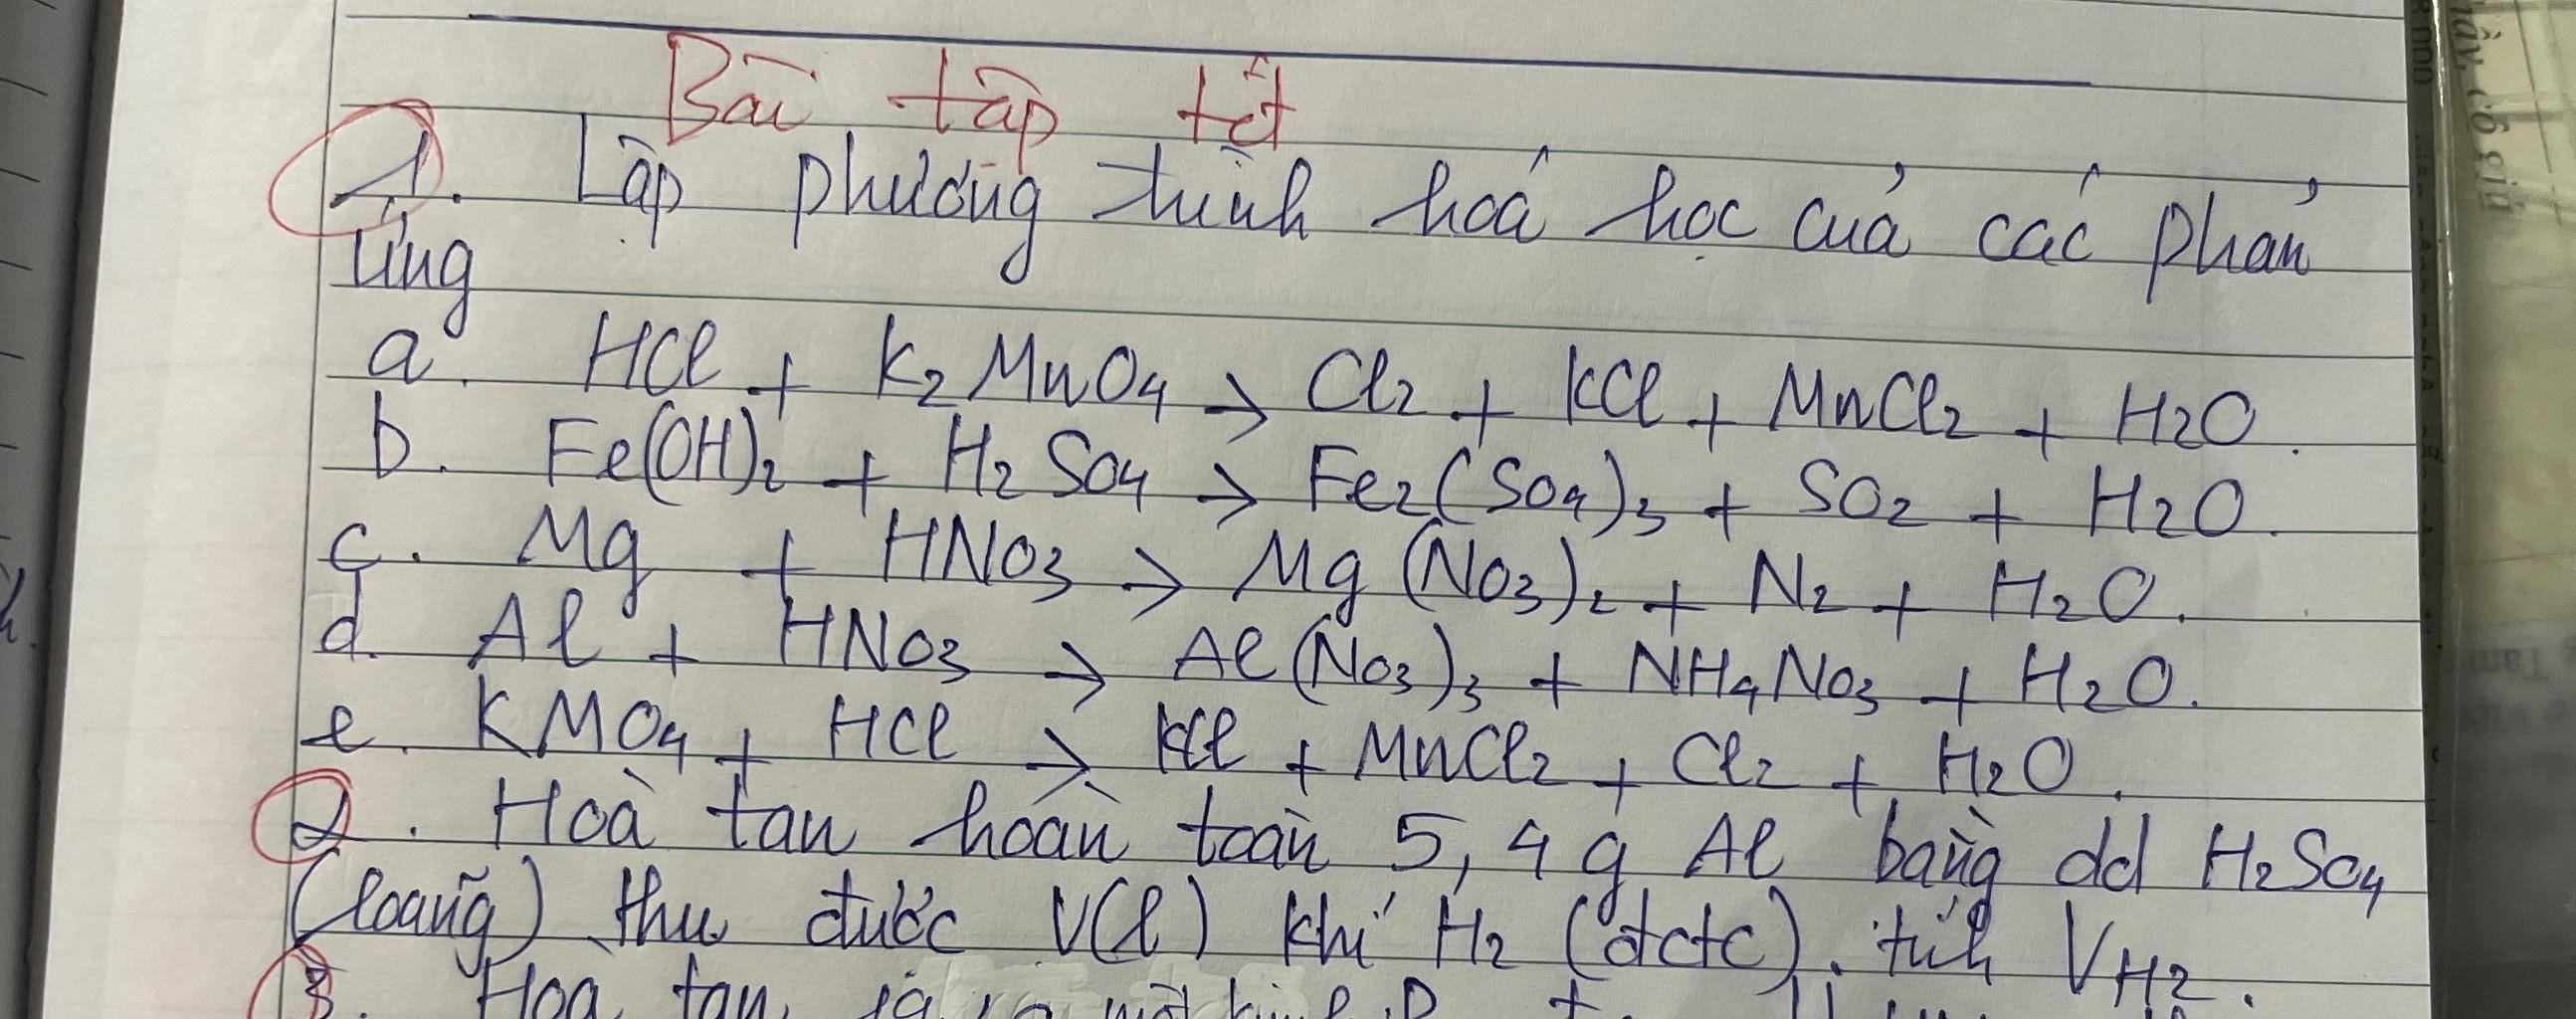 Bài tập tết
1. Lập phương trình hoá học của các phản
ứng
a. HCl + K2MnO4 → Cl2 + KCl + MnCl2 + H2O.
b. Fe(OH)2 + H2SO4 → Fe2(SO4)3 + SO2 + H2O.
c. Mg + HNO3 → Mg(NO3)2 + N2 + H2O.
d. Al + HNO3 → Al(NO3)3 + NH4NO3 + H2O.
e. KMO4 + HCl → KCl + MnCl2 + Cl2 + H2O.
2. Hoà tan hoàn toàn 5,4g Al bằng dd H2SO4
(loãng) thu được V(l) khí H2 (đctc). tính VH2.
3. Hoà tan